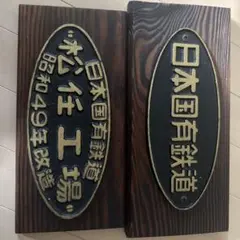 日本国有鉄道
"松任工場"
昭和49年改造
日本国有鉄道